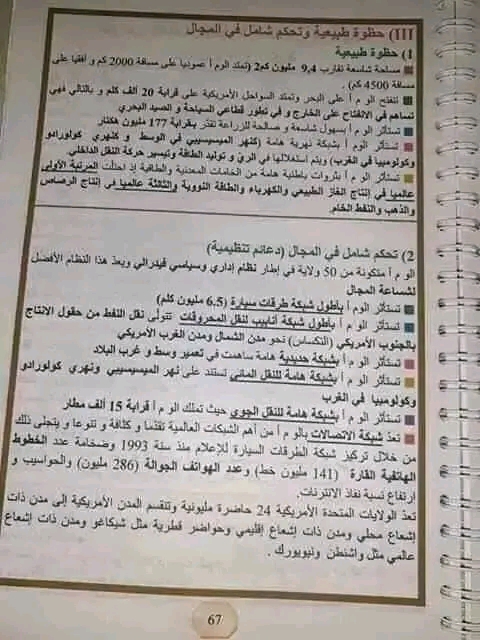 III) حظوة طبيعية وتحكم شامل في المجال
1) حظوة طبيعية
مساحة شاسعة تقارب 9,4 مليون كم2 (تمتد الوم أ عموديا على مسافة 2000 كم و أفقيا على
مسافة 4500 كم) .
تنفتح الوم أ على البحر وتمتد السواحل الأمريكية على قرابة 20 ألف كلم و بالتالي فهي
تساهم في الانفتاح على الخارج و في تطور قطاعي السياحة و الصيد البحري
تستأثر الوم أ بسهول شاسعة و صالحة للزراعة تقدّر بـقرابة 177 مليون هكتار
تستأثر الوم أ بشبكة نهرية هامة (كنهر الميسيسيبي في الوسط و كنهري كولورادو
وكولومبيا في الغرب) ويتم استغلالها في الريّ و توليد الطاقة وتيسير حركة النقل الداخلي
تستأثر الوم أ بثروات باطنية هامة من الخامات المعدنية والطاقية إذ احتلّت المرتبة الأولى
عالميا في إنتاج الغاز الطبيعي والكهرباء والطاقة النووية والثالثة عالميا في إنتاج الرصاص
والذهب والنفط الخام.
2) تحكم شامل في المجال (دعائم تنظيمية)
الوم أ متكونة من 50 ولاية في إطار نظام إداري وسياسي فيدرالي ويعدّ هذا النظام الأفضل
لشساعة المجال
تستأثر الوم أ بأطول شبكة طرقات سيارة (6.5 مليون كلم)
تستأثر الوم أ بأطول شبكة أنابيب لنقل المحروقات تتولّى نقل النفط من حقول الانتاج
بالجنوب الأمريكي (التكساس) نحو مدن الشمال ومدن الغرب الأمريكي
تستأثر الوم أ بشبكة حديدية هامة ساهمت في تعمير وسط و غرب البلاد
تستأثر الوم أ بشبكة هامة للنقل المائي تستند على نهر الميسيسيبي ونهري كولورادو
وكولومبيا في الغرب
تستأثر الوم أ بشبكة هامة للنقل الجوي حيث تملك الوم أ قرابة 15 ألف مطار
تعدّ شبكة الاتصالات بالوم أ من أهم الشبكات العالمية تقدّما و كثافة و تنوعا و يتجلى ذلك
من خلال تركيز شبكة الطرقات السيارة للإعلام منذ سنة 1993 وضخامة عدد الخطوط
الهاتفية القارة (141 مليون خط) وعدد الهواتف الجوالة (286 مليون) والحواسيب و
ارتفاع نسبة نفاذ الانترنات.
تعدّ الولايات المتحدة الأمريكية 24 حاضرة مليونية وتنقسم المدن الأمريكية إلى مدن ذات
إشعاع محلي ومدن ذات إشعاع إقليمي وحواضر قطرية مثل شيكاغو ومدن ذات إشعاع
عالمي مثل واشنطن ونيويورك .
67